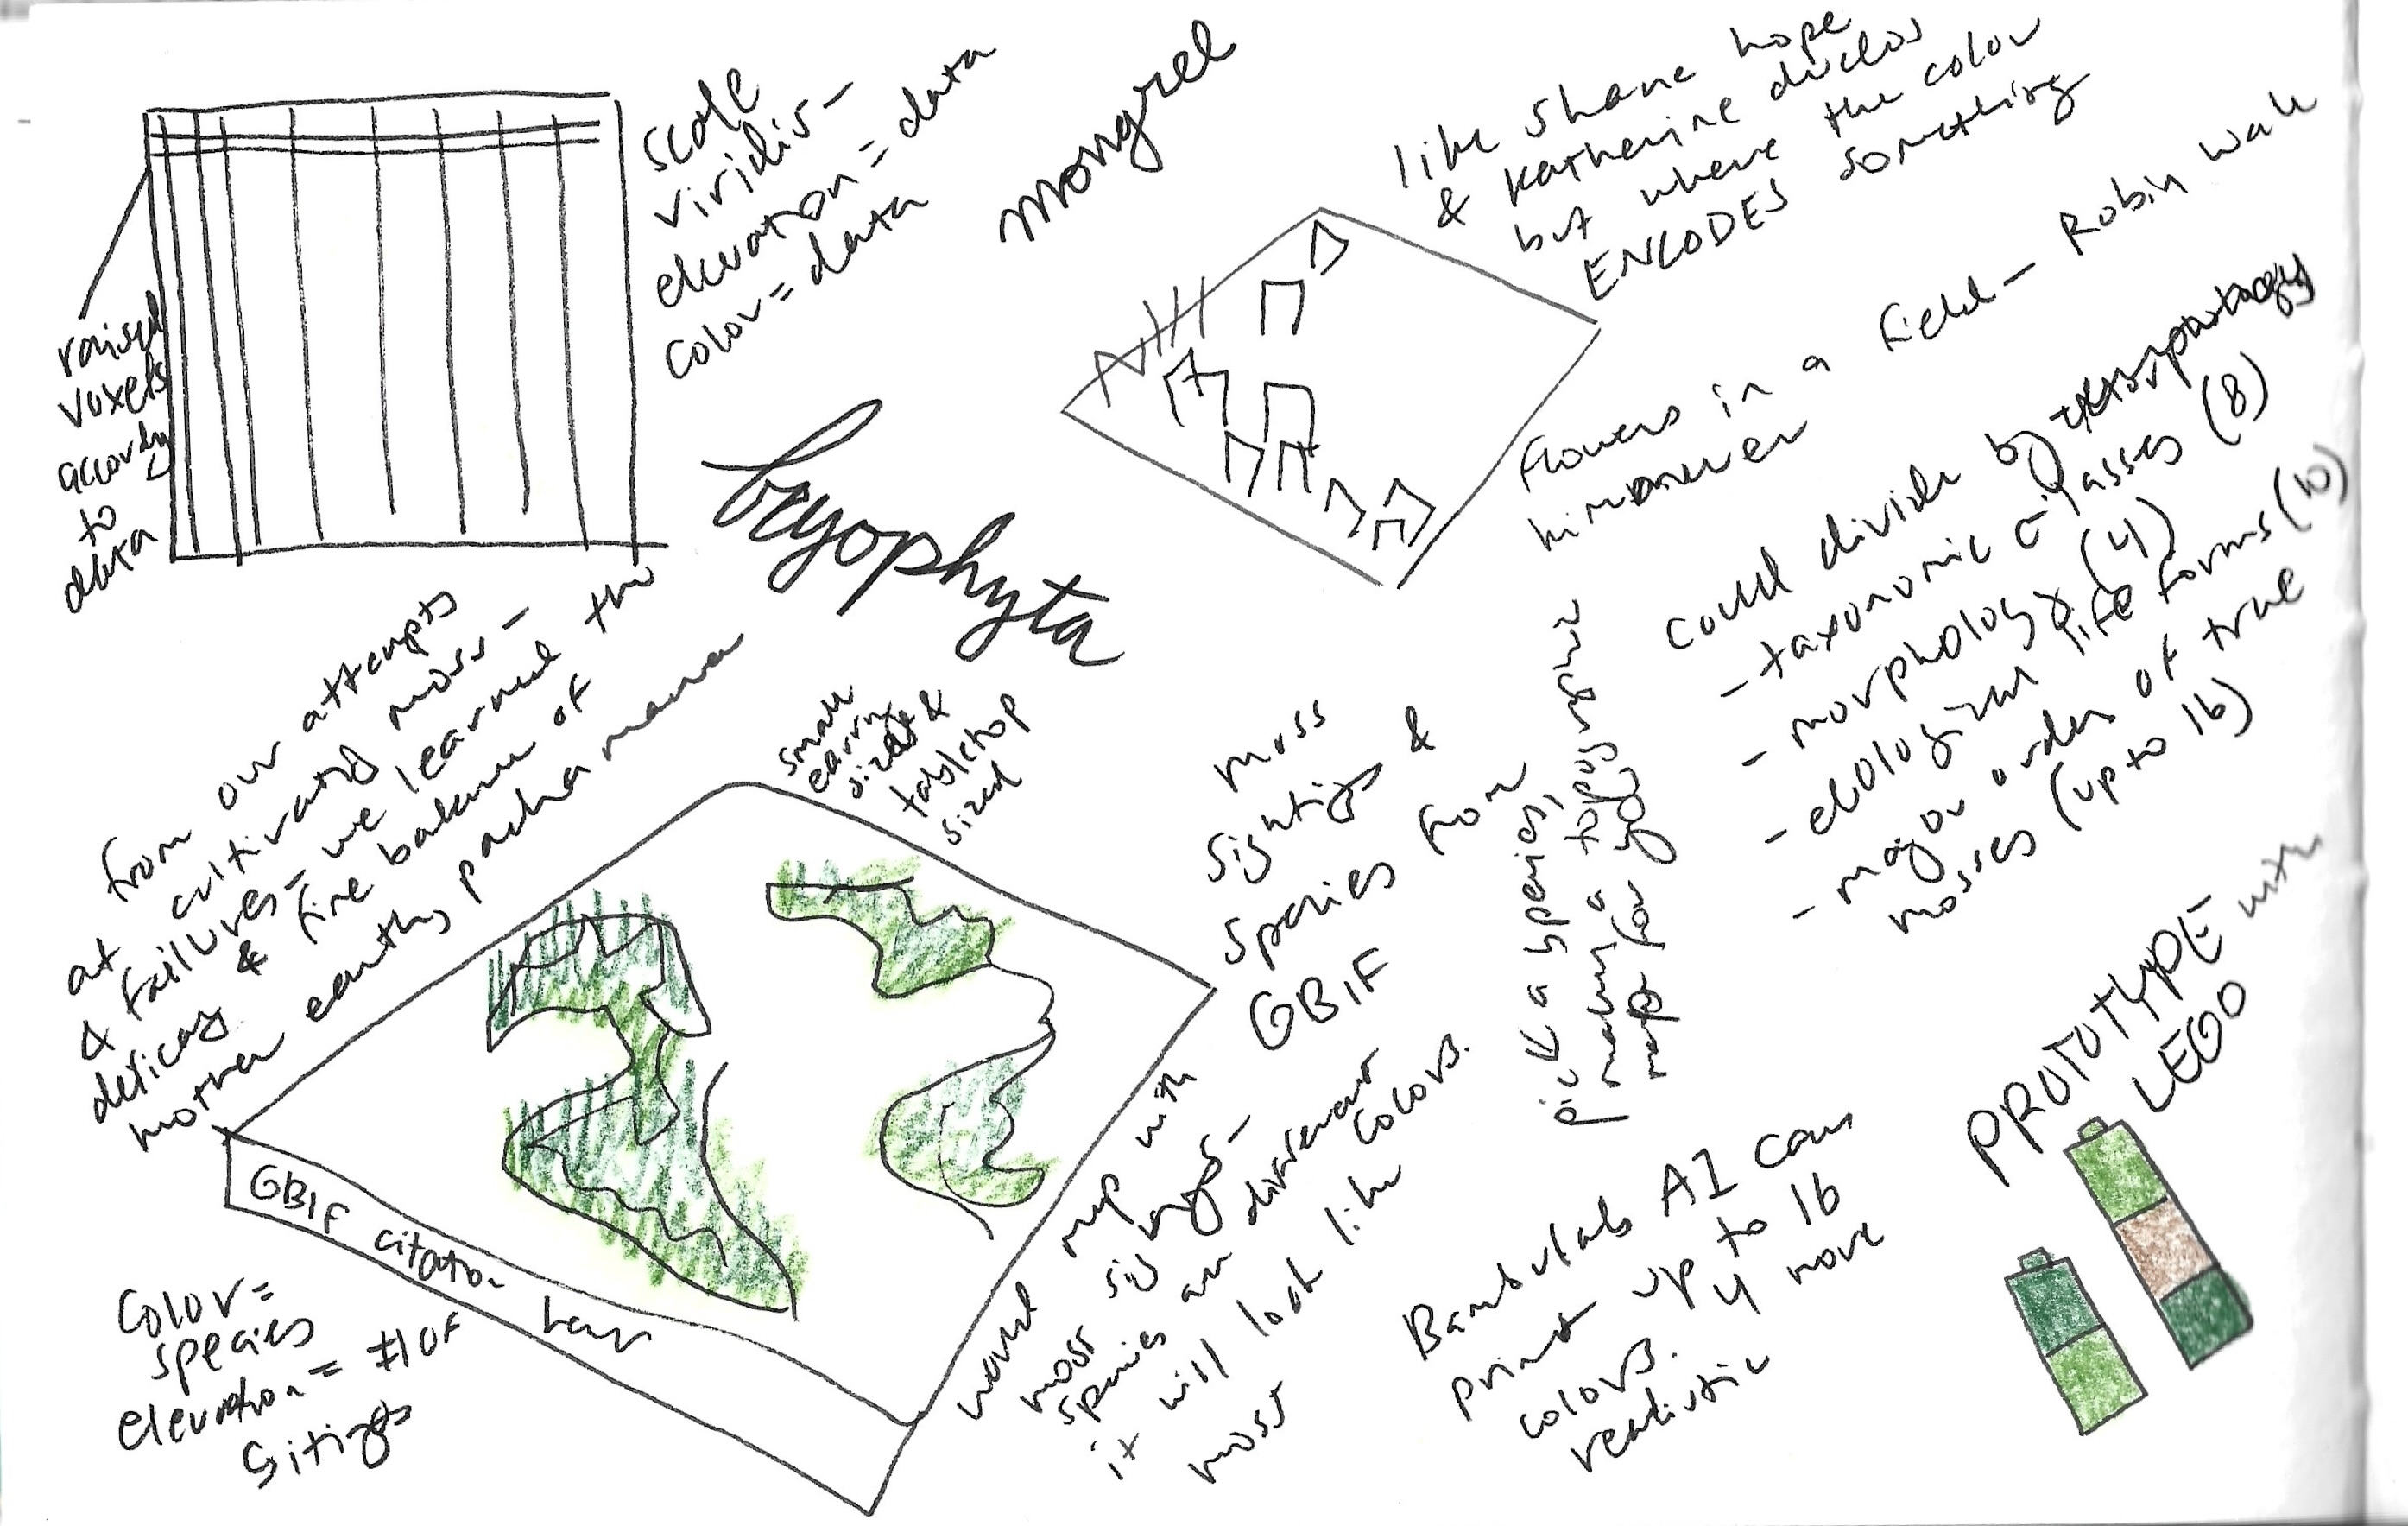 scale
viridis-
elevation = data
color = data
mongrel
like Shane hope
& Katherine duclos
but where the color
ENCODES something
raised
voxels
to
data
bryophyta
Flowers in a field - Robin wall
could divide by
- taxonomic classes (8)
- morphology (4)
- ecological life forms (10)
- major orders of true
mosses (up to 16)
from our attempts
at cultivating moss -
& failures - we learned the
& fine balance of
mother earth, pacha mama
small
earring
sized &
tabletop
sized
moss
sightings &
species from
GBIF
pick a species,
making a topographic
map for
PROTOTYPE with
LEGO
GBIF citation here
color =
species
elevation = # of
sitings
world map with
moss
species are different colors.
it will look like
moss
Bambulabs A1 can
print up to 16
colors. 4 more
realistic